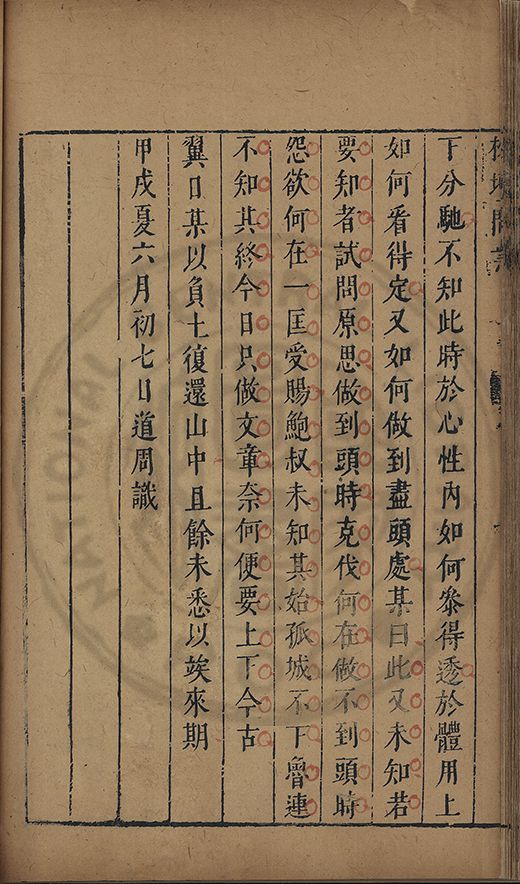 下分馳不知此時於心性內如何叅得透於體用上
如何看得定又如何做到盡頭處某曰此又未知若
要知者試問原思做到頭時克伐何在做不到頭時
怨欲何在一匡受賜鮑叔未知其始孤城不下魯連
不知其終今日只做文章奈何便要上下今古
翼日某以負土復還山中且餘未悉以竢來期
甲戌夏六月初七日道周識